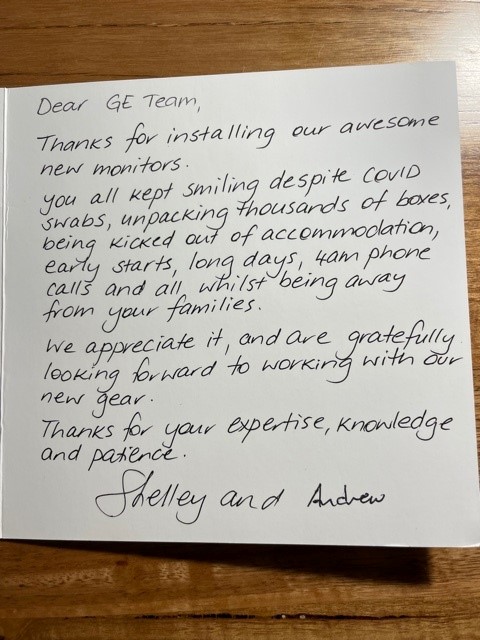 Dear GE Team,
Thanks for installing our awesome
new monitors.
you all kept smiling despite COVID
swabs, unpacking thousands of boxes,
being kicked out of accommodation,
early starts, long days, 4am phone
calls and all whilst being away
from your families.
We appreciate it, and are gratefully
looking forward to working with our
new gear.
Thanks for your expertise, knowledge
and patience.
Shelley and Andrew